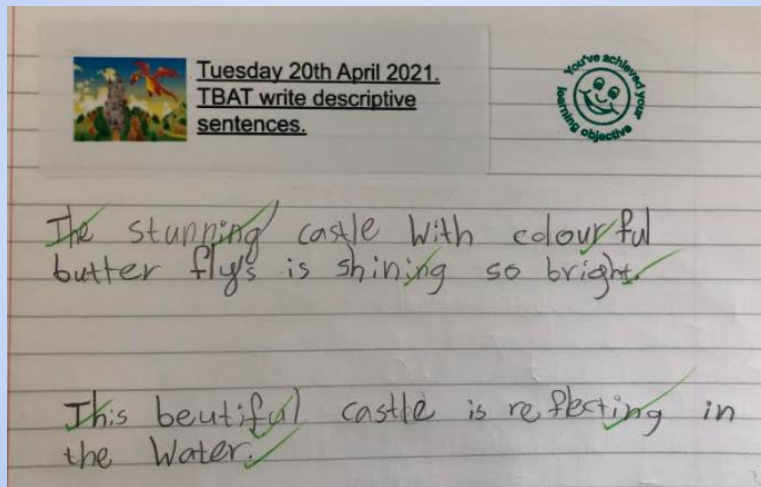 Tuesday 20th April 2021.
TBAT write descriptive
sentences.
You've achieved your
learning objective
The stunning castle With colourful
butter fly's is shining so bright.
This beutiful castle is reflecting in
the Water.